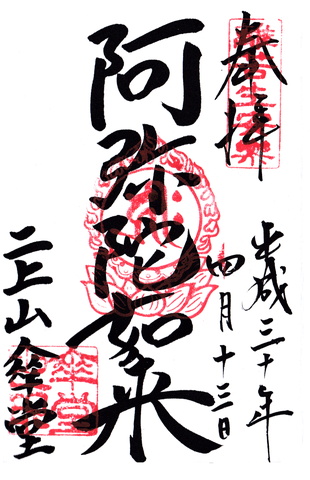 奉拝
平成三十年
四月十三日
阿弥陀如来
二上山傘堂
傘堂